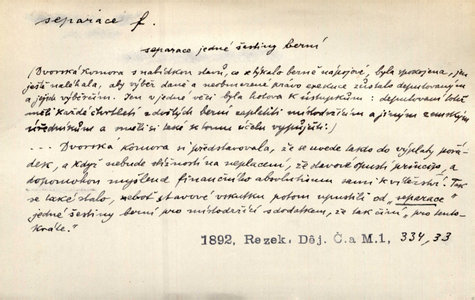 separace f.
separace jedné šestiny berní
(Dvorská komora s nabídkou stavů, co se týkalo berně nápojové, byla spokojena, jen
ještě naléhala, aby výběr daně a neobmezené právo exekuce zůstalo deputovaným
a jejich výběrčím. Jen v jedné věci byla hotova k ústupkům: deputovaní totiž
měli každé čtvrtletí z došlých berní zapraviti místodržícím a jiným zemským
úředníkům a směli si také k tomu účelu vypůjčiti:)
... Dvorská komora si představovala, že se uvede takto do výplaty pořá-
dek, a když nebude stížností na neplacení, že stavové opustí princip, a
dopomohou myšlence finančního absolutismu sami k vítězství. Tak
se také stalo, neboť stavové vskutku potom upustili od „separace"
jedné šestiny berní pro místodržící s dodatkem, že tak činí „pro tento-
kráte."
1892, Rezek, Děj. Č. a M. 1, 334, 33